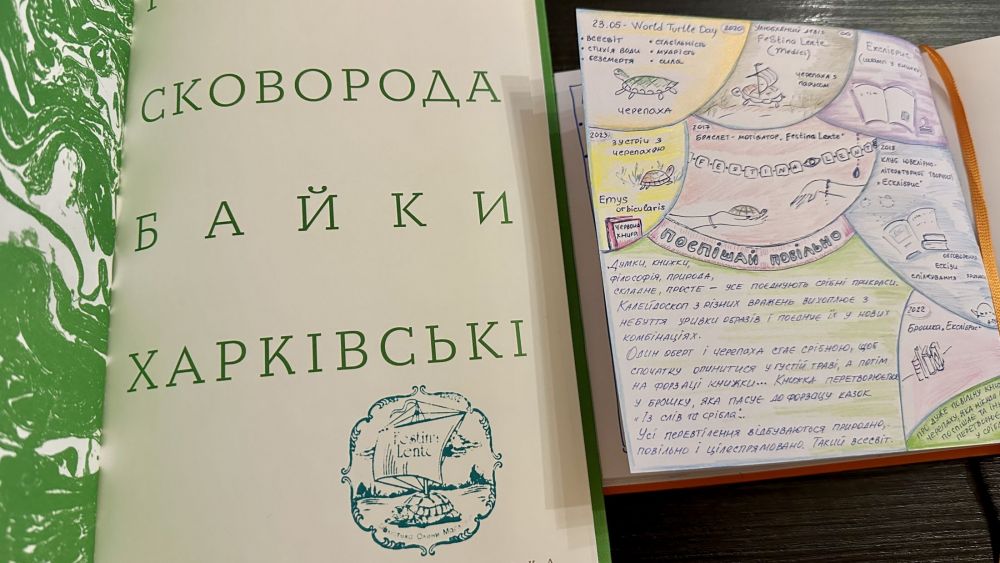 СКОВОРОДА
БАЙКИ
ХАРКІВСЬКІ
Festina
Lente
23.05 - World Turtle Day 2020
• ВСЕСВІТ
• СТИХІЯ ВОДИ
БЕЗСМЕРТЯ
• СТАБІЛЬНІСТЬ
• МУДРІСТЬ
• СИЛА
ЧЕРЕПАХА
УЛЮБЛЕНИЙ ДЕВІЗ
Festina Lente
(Medici)
ЧЕРЕПАХА З
ПАРУСОМ
ЕКСЛІБРИС
2023
ЗУСТРІЧ З
ЧЕРЕПАХОЮ
Emys
orbicularis
ЧЕРВОНА
КНИГА
2017
БРАСЛЕТ-МОТИВАТОР „Festina Lente"
FESTINA LENTE
ПОСПІШАЙ ПОВІЛЬНО
2018
КЛУБ ЮВЕЛІРНО-
ЛІТЕРАТУРНОЇ ТВОРЧОСТІ
ОБГОВОРЕННЯ
ЕСКІЗИ
СПІЛКУВАННЯ
2022
БРОШКА „ЕКСЛІБРИС"
ДУМКИ, КНИЖКИ,
ФІЛОСОФІЯ, ПРИРОДА,
СКЛАДНЕ, ПРОСТЕ – УСЕ ПОЄДНУЮТЬ СРІБНІ ПРИКРАСИ.
КАЛЕЙДОСКОП З РІЗНИХ ВРАЖЕНЬ ВИХОПЛЮЄ З
НЕБУТТЯ УРИВКИ ОБРАЗІВ І ПОЄДНУЄ ЇХ У НОВИХ
КОМБІНАЦІЯХ.
ОДИН ОБЕРТ І ЧЕРЕПАХА СТАЄ СРІБНОЮ, ЩОБ
СПОЧАТКУ ОПИНИТИСЯ У ГУСТІЙ ТРАВІ, А ПОТІМ
НА ФОРЗАЦІ КНИЖКИ... КНИЖКА ПЕРЕТВОРЮЄТЬСЯ
У БРОШКУ, ЯКА ПАСУЄ ДО ФОРЗАЦУ КАЗОК
„ІЗ СЛІВ ТА СРІБЛА".
УСІ ПЕРЕВТІЛЕННЯ ВІДБУВАЮТЬСЯ ПРИРОДНО,
ПОВІЛЬНО І ЦІЛЕСПРЯМОВАНО. ТАКИЙ ВСЕСВІТ.
ПРО ДУЖЕ ПОВІЛЬНУ
ЧЕРЕПАХУ, ЯКА НІКОЛИ
ПОСПІШАЄ ТА